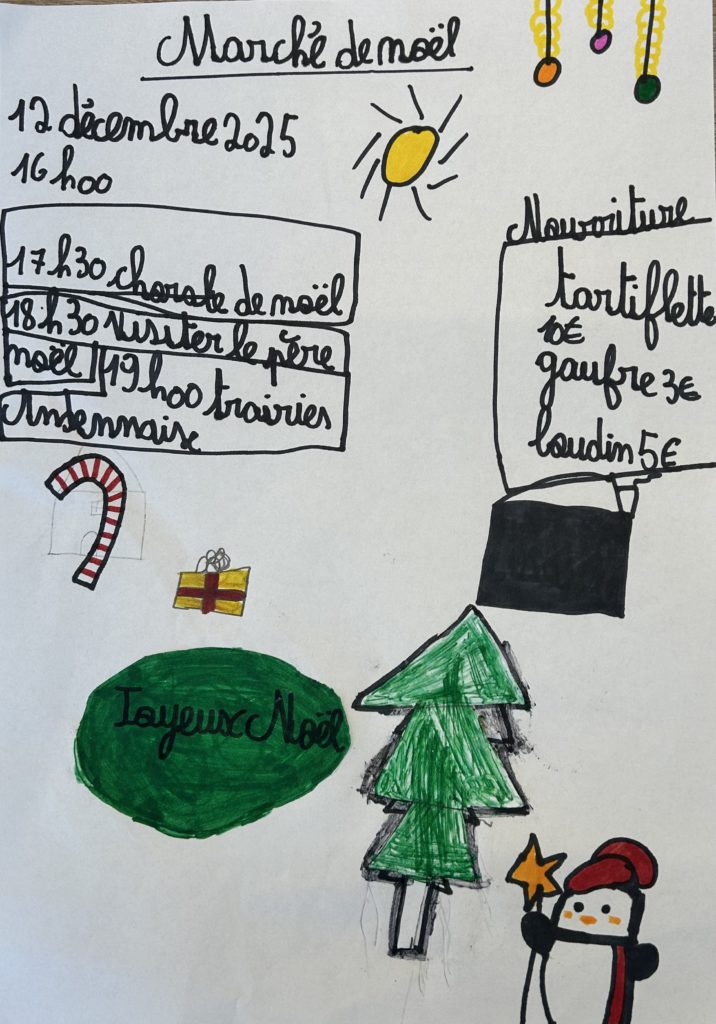 Marché de noël
12 décembre 2025
16h00
17h30 chorale de noël
18h30 visiter le père
noël
19h00 trairies
Antennaise
Nouvoriture
tartiflette
10€
gaufre 3€
boudin 5€
Joyeux Noël